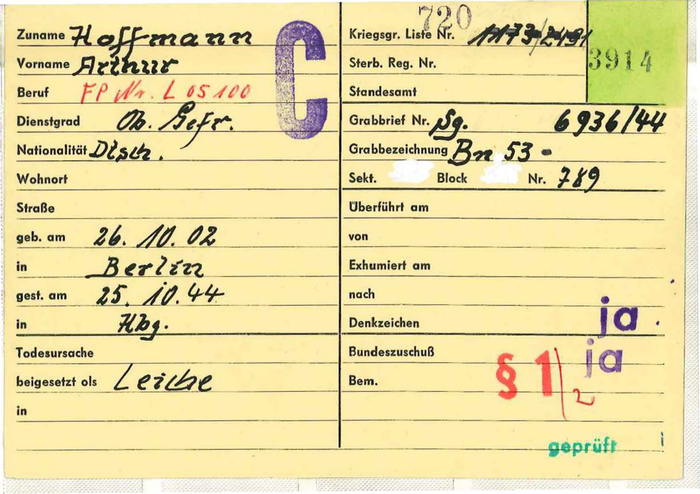 720
Zuname Hoffmann
Vorname Arthur
Beruf FP Nr. L 05100
Dienstgrad Ob. Gefr.
Nationalität Dtsch.
Wohnort
Straße
geb. am 26. 10. 02
in Berlin
gest. am 25. 10. 44
in Hbg.
Todesursache
beigesetzt als Leiche
in
C
Kriegsgr. Liste Nr. 1173/2491
3914
Sterb. Reg. Nr.
Standesamt
Grabbrief Nr. Sg. 6936/44
Grabbezeichnung Bn 53-
Sekt. Block Nr. 789
Überführt am
von
Exhumiert am
nach
Denkzeichen ja
Bundeszuschuß ja
Bem. § 1/2
geprüft